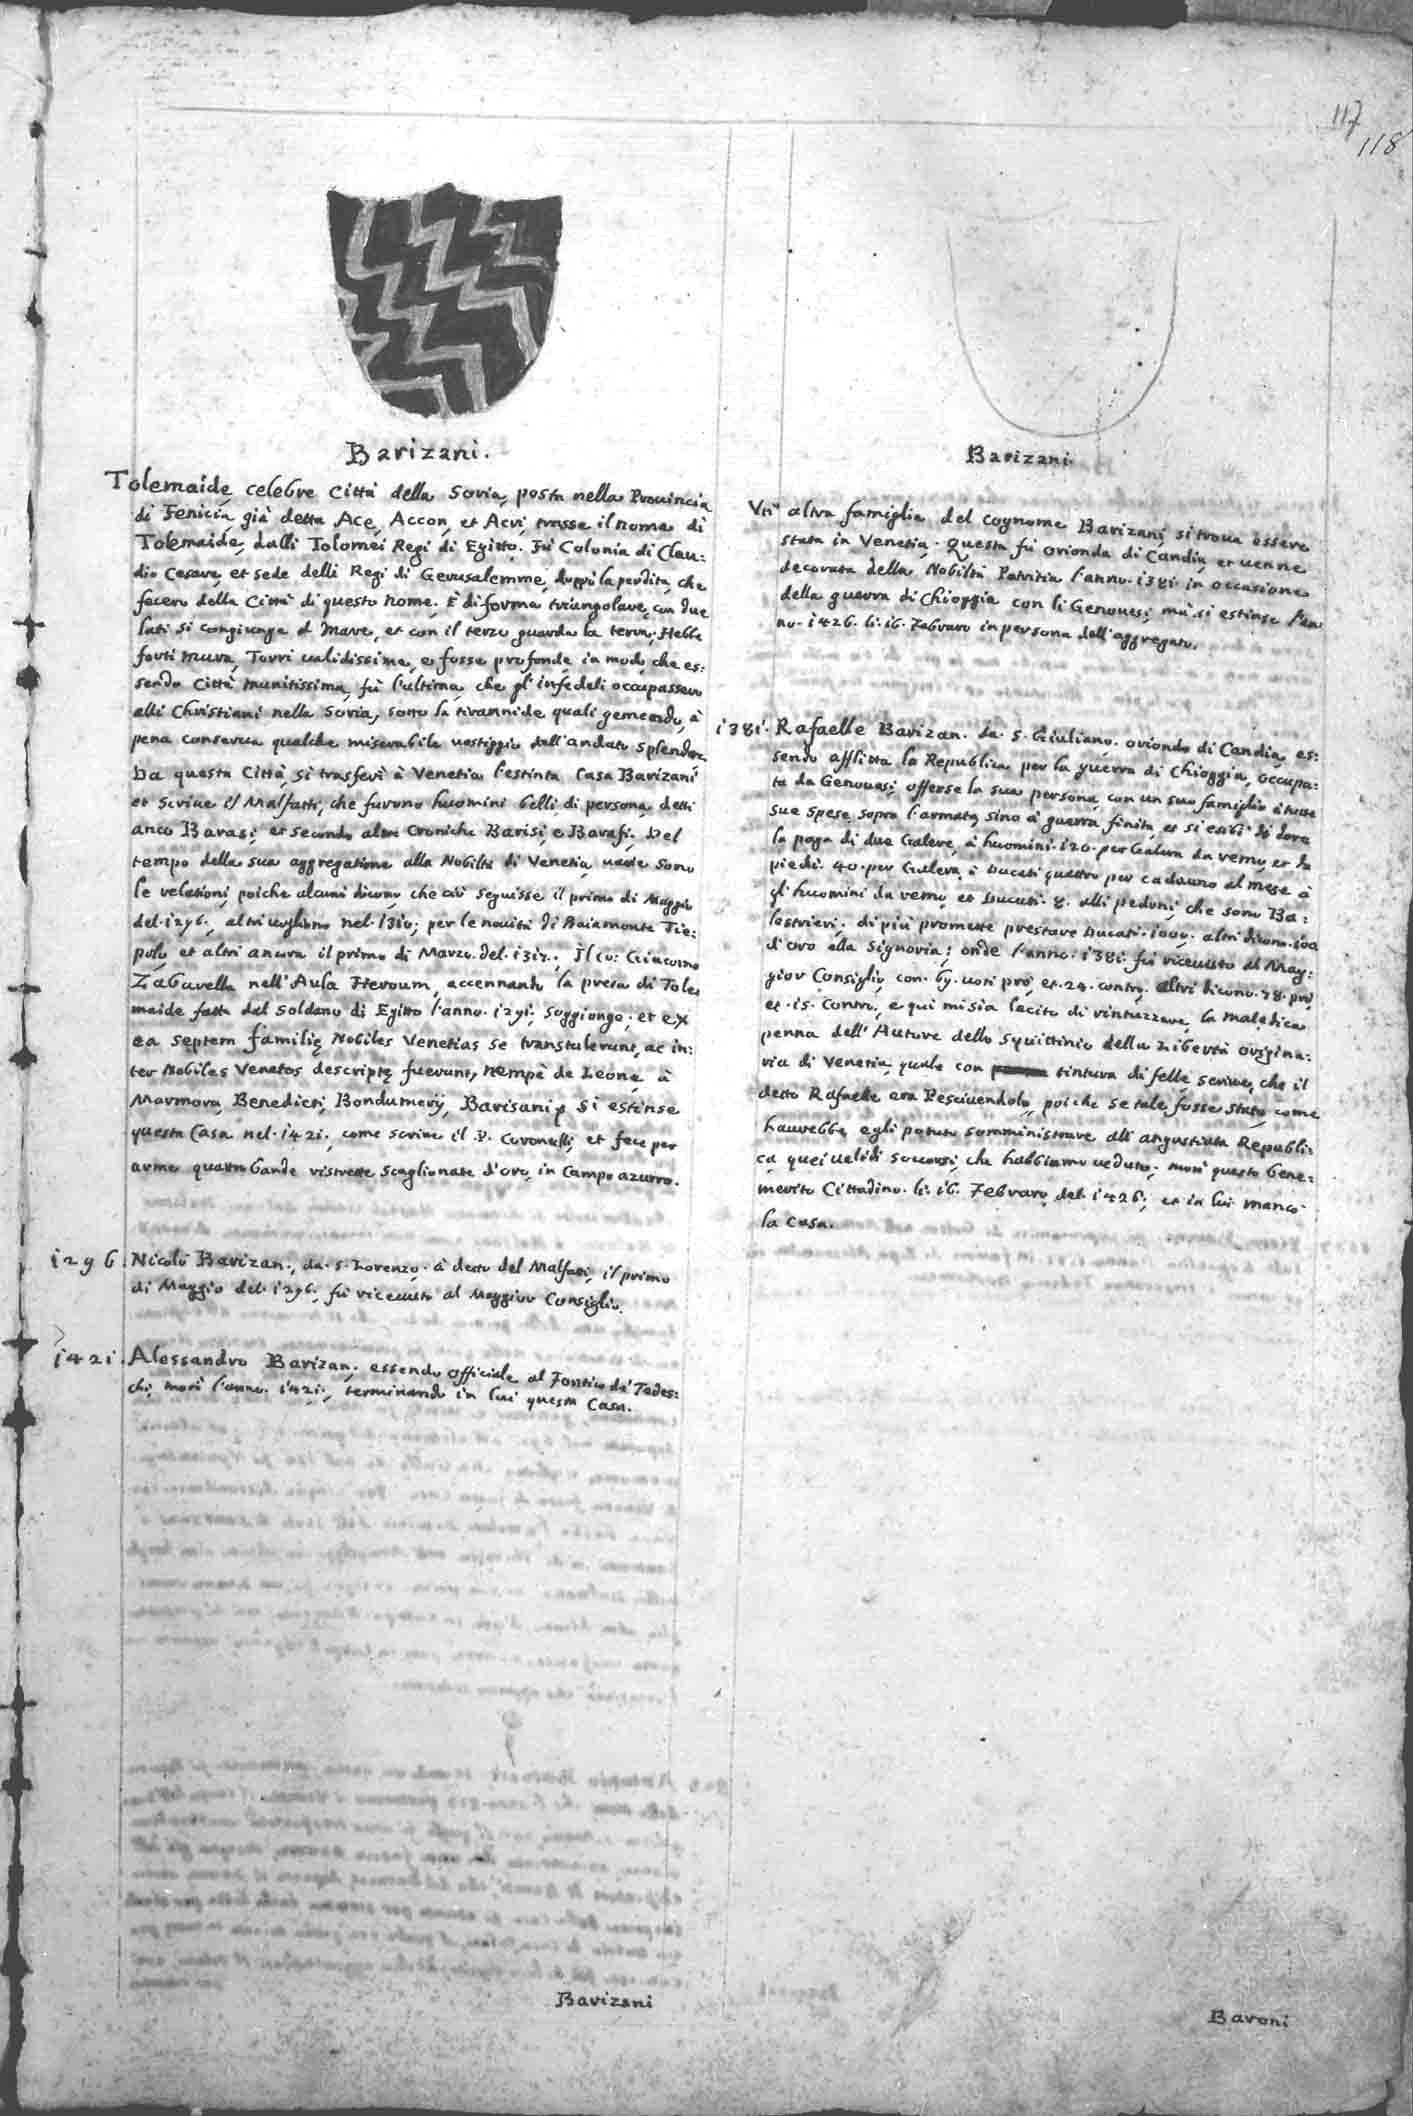 117
118
Barizani.
Tolemaide celebre Città della Soria, posta nella Prouincia
di Fenicia, già detta Ace, Accon, et Acri, trasse il nome di
Tolemaide, dalli Tolomei Regi di Egitto. Fù Colonia di Clau:
dio Cesare, et sede delli Regi di Gerusalemme, doppò la perdita, che
fecero della Città di questo nome. È di forma triangolare, con due
lati si congiunge al Mare, et con il terzo guarda la terra. Hebbe
forti mura, Torri ualidissime, e fosse profonde, in modo, che es:
sendo Città munitissima, fù l'ultima, che gl'infedeli occupassero
alli Christiani nella Soria, sotto la tirannide quali gemendo, à
pena conserua qualche miserabile uestiggio dell'andato splendore.
Da questa Città, si trasferì à Venetia l'estinta Casa Barizani
et scriue il Malfatti, che furono huomini belli di persona, detti
anco Barasi, et secondo altre Croniche Barisi, e Barafi. Del
tempo della sua aggregatione alla Nobiltà di Venetia, uarie sono
le relationi, poiche alcuni dicono, che ciò seguisse il primo di Maggio
del. 1296., altri uogliono nel. 1310; per le nouità di Baiamonte Tie:
polo, et altri ancora il primo di Marzo. del. 1317. Il Co: Giacomo
Zabarella nell'Aula Heroum, accennando la presa di Tole
maide fatta dal Soldano di Egitto l'anno. 1291. soggionge, et ex
ea septem familię Nobiles Venetias se transtulerunt, ac in:
ter Nobiles Venetos descriptę fuerunt, nempè de Leone, à
Marmora, Benedicti, Bondumerij, Barisani. Si estinse
questa Casa nel. 1421. come scriue il P. Coronelli, et fece per
arme quatro bande ristrette scaglionate d'oro, in Campo azurro.
1296. Nicolò Barizan., da. S. Lorenzo. à detto del Malfatti, il primo
di Maggio del. 1296. fù riceuuto al Maggior Consiglio.
1421. Alessandro Barizan., essendo officiale al Fontico de' Todes:
chi, morì l'anno. 1421., terminando in lui questa Casa.
Barizani
Barizani.
Vn' altra famiglia del cognome Barizani, si troua essere
stata in Venetia. Questa fù orionda di Candia, et uenne
decorata della Nobiltà Patritia l'anno. 1381. in occasione
della guerra di Chioggia con li Genouesi, mà si estinse l'an
no. 1426. li. 16. Febraro in persona dell'aggregato.
1381. Rafaelle Barizan. da. S. Giuliano. oriondo di Candia, es:
sendo afflitta la Republica per la guerra di Chioggia, occupa:
ta da Genouesi, offerse la sua persona, con un suo famiglio à tutte
sue spese sopra l'armata, sino à guerra finita, et si esibì di dare
la paga di due Galere, à huomini. 120. per Galera da remo, et da
piedi. 40. per Galera, à Ducati quattro per cadauno al mese à
gl'huomini da remo, et Ducati. 8. alli pedoni, che sono Ba:
lestrieri. di più promette prestare Ducati. 1000. altri dicono. 500
d'oro alla Signoria; onde l'anno. 1381. fù riceuuto al Mag:
gior Consiglio con. 69. uoti prò, et. 24. contro. altri dicono. 78. prò,
et. 15. contro, e qui mi sia lecito di rintuzzare, la maledica
penna dell'Autore dello Squittinio della Libertà origina:
ria di Venetia, quale con tintura di felle scriue, che il
detto Rafaelle era Pesciuendolo, poiche se tale fosse stato, come
haurebbe egli potuto somministrare all'angustiata Republi:
ca quei ualidi soccorsi, che habbiamo ueduto. morì questo bene:
merito Cittadino. li. 16. Febraro. del. 1426; et in lui mancò
la casa.
Baroni